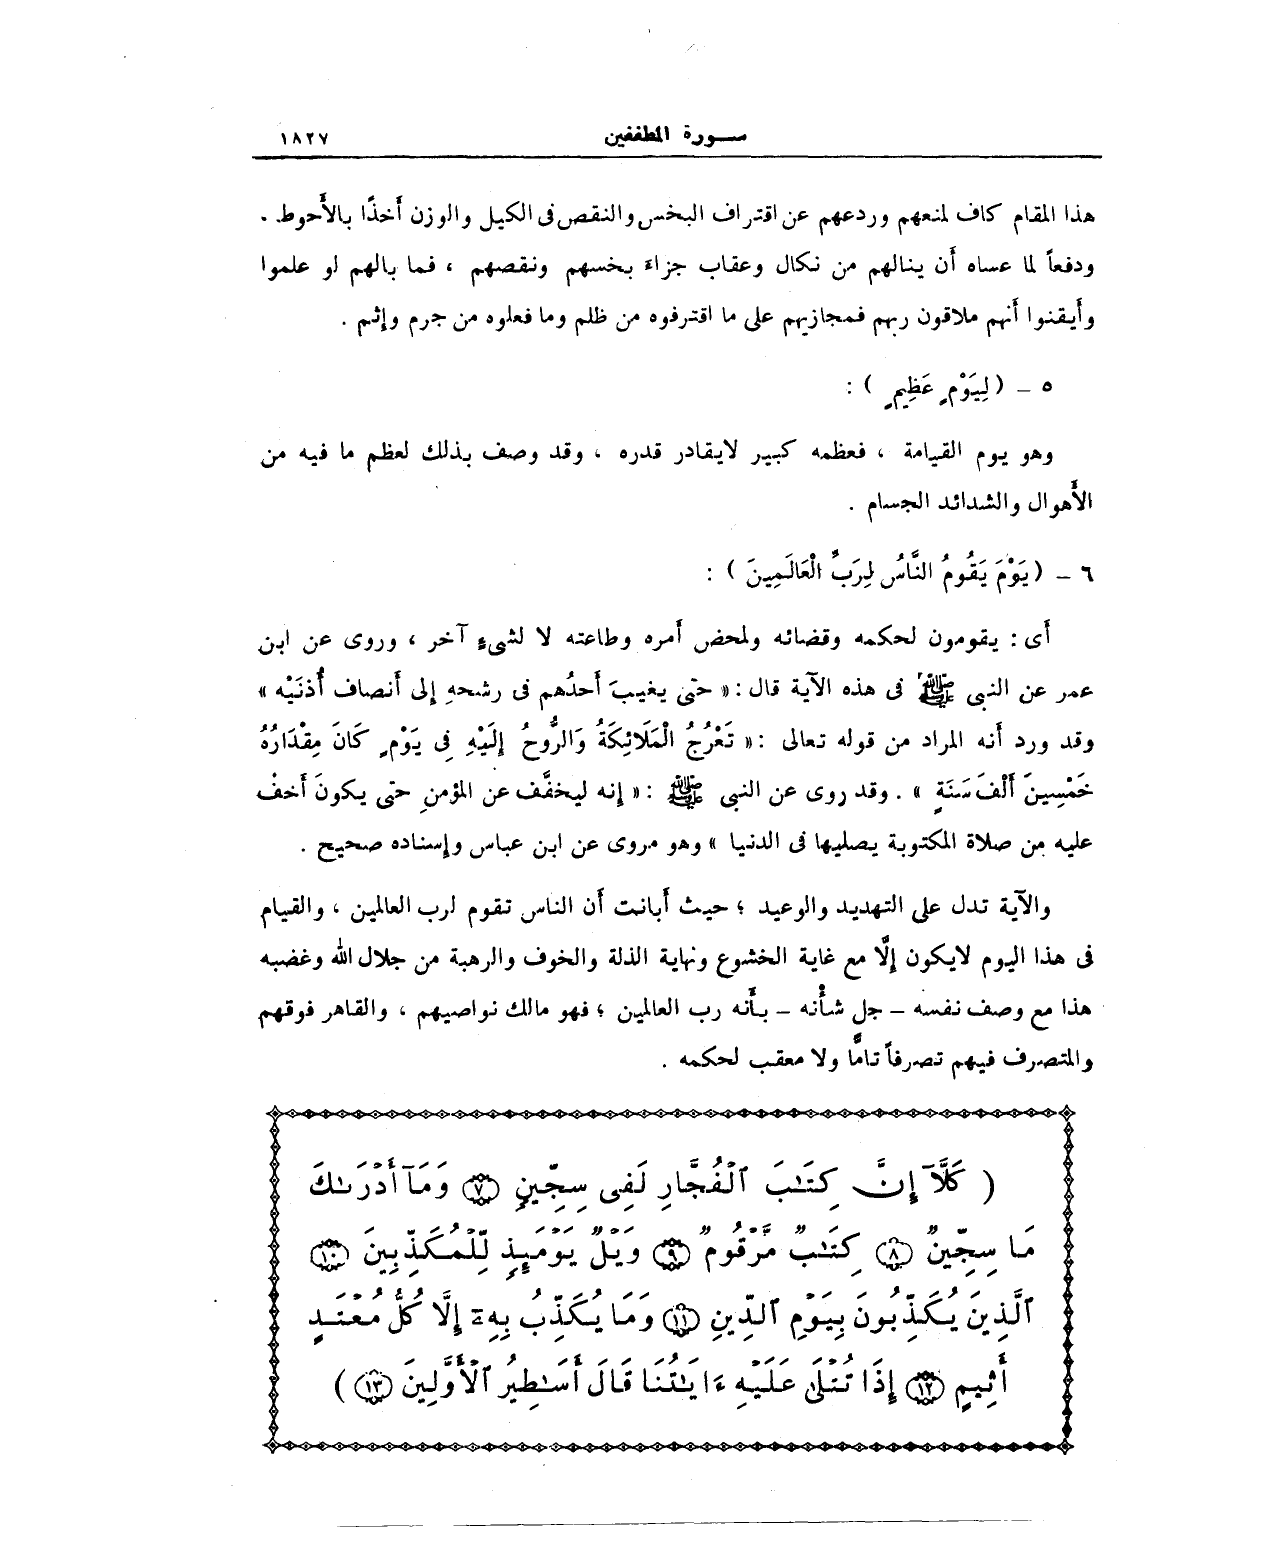 سورة المطففين ١٨٢٧
هذا المقام كاف لمنعهم وردعهم عن اقتراف البخس والنقص فى الكيل والوزن أخذًا بالأَحوط .
ودفعاً لما عساه أن ينالهم من نكال وعقاب جزاءَ بخسهم ونقصهم ، فما بالهم لو علموا
وأيقنوا أنهم ملاقون ربهم فمجازيهم على ما اقترفوه من ظلم وما فعلوه من جرم وإثم .
٥ – ( لِيَوْمٍ عَظِيمٍ ) :
وهو يوم القيامة ، فعظمه كبير لايقادر قدره ، وقد وصف بذلك لعظم ما فيه من
الأَهوال والشدائد الجسام .
٦ – ( يَوْمَ يَقُومُ النَّاسُ لِرَبِّ الْعَالَمِينَ ) :
أى : يقومون لحكمه وقضائه ولمحض أمره وطاعته لا لشىءٍ آخر ، وروى عن ابن
عمر عن النبى ﷺ فى هذه الآية قال : « حتى يغيبَ أحدُهم فى رشحهِ إلى أنصاف أُذنَيْه »
وقد ورد أنه المراد من قوله تعالى : « تَعْرُجُ الْمَلَائِكَةُ وَالرُّوحُ إِلَيْهِ فِى يَوْمٍ كَانَ مِقْدَارُهُ
خَمْسِينَ أَلْفَ سَنَةٍ » . وقد روى عن النبى ﷺ : « إنه ليخفَّف عن المؤمنِ حتى يكونَ أخفْ
عليه من صلاة المكتوبة يصليها فى الدنيا » وهو مروى عن ابن عباس وإسناده صحيح .
والآية تدل على التهديد والوعيد ؛ حيث أبانت أن الناس تقوم لرب العالمين ، والقيام
فى هذا اليوم لايكون إلَّا مع غاية الخشوع ونهاية الذلة والخوف والرهبة من جلال الله وغضبه
هذا مع وصف نفسه – جل شأْنه – بأَنه رب العالمين ؛ فهو مالك نواصيهم ، والقاهر فوقهم
والمتصرف فيهم تصرفاً تامًّا ولا معقب لحكمه .
( كَلَّآ إِنَّ كِتَـٰبَ ٱلْفُجَّارِ لَفِى سِجِّينٍ ٧ وَمَآ أَدْرَىٰكَ
مَا سِجِّينٌ ٨ كِتَـٰبٌ مَّرْقُومٌ ٩ وَيْلٌ يَوْمَئِذٍ لِّلْمُكَذِّبِينَ ١٠
ٱلَّذِينَ يُكَذِّبُونَ بِيَوْمِ ٱلدِّينِ ١١ وَمَا يُكَذِّبُ بِهِۦٓ إِلَّا كُلُّ مُعْتَدٍ
أَثِيمٍ ١٢ إِذَا تُتْلَىٰ عَلَيْهِ ءَايَـٰتُنَا قَالَ أَسَـٰطِيرُ ٱلْأَوَّلِينَ ١٣ )